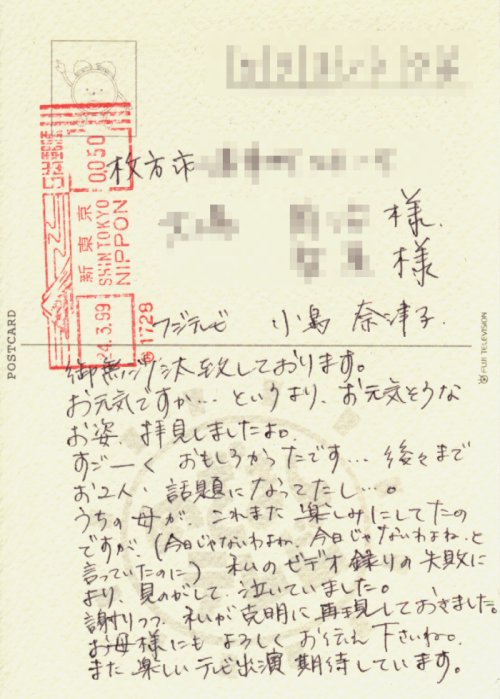 枚方市
様
様
フジテレビ 小島 奈津子
御無沙汰致しております。
お元気ですか… というより、お元気そうな
お姿、拝見しましたよ。
すご〜く おもしろかったです… 後々まで
お2人、話題になってたし…。
うちの母が、これまた 楽しみにしてたの
ですが、(今日じゃないわよね、今日じゃないわよね、と
言っていたのに) 私のビデオ録りの失敗に
より、見のがして、泣いていました。
謝りつつ、私が克明に再現しておきました。
お母様にも よろしく お伝え 下さいね。
また 楽しいテレビ出演 期待しています。
POSTCARD
FUJI TELEVISION
新東京
SHINTOKYO
NIPPON
0050
24.3.99
1728